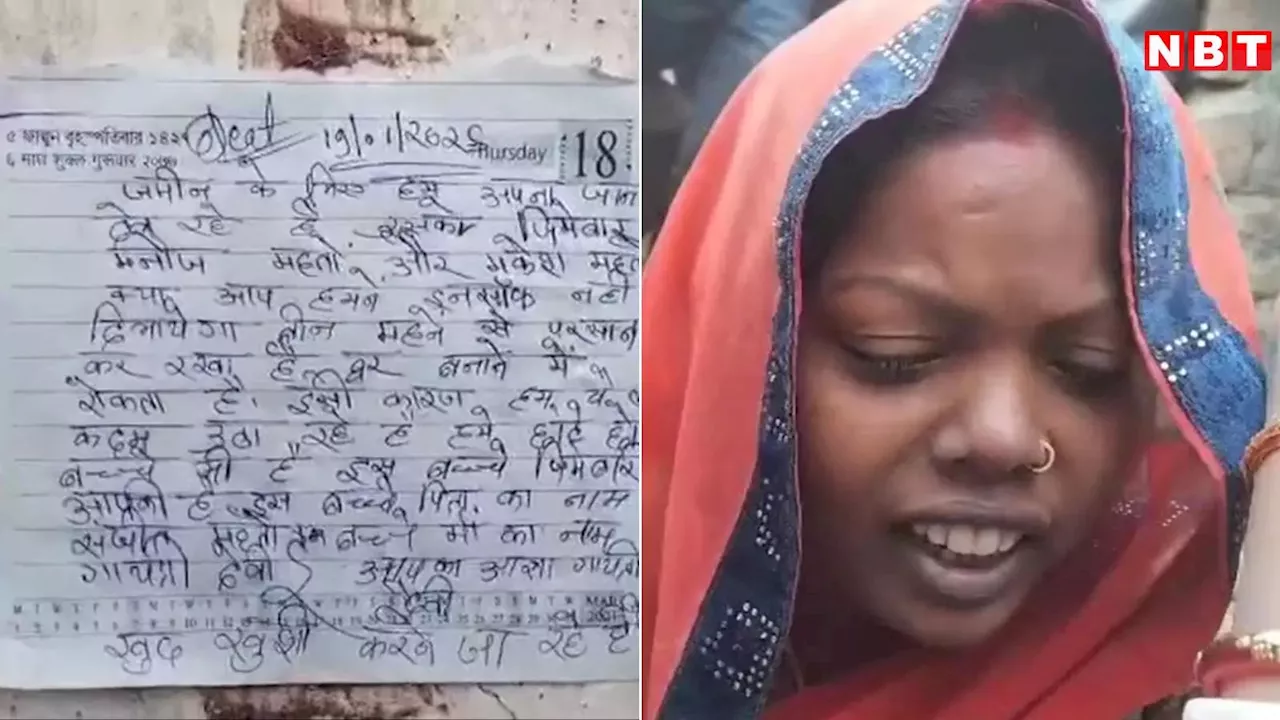 ৫ ফাল্গুন বৃহস্পতিবার ১৪২
६ माघ शुक्ल गुरूवार २०७७
19/01/2026
Thursday
18
जमीन के लिए हम अपना जान
दे रहे है इसका जिमेवार
मनोज महतो, और मुकेश महत
क्या आप हमने इनसॉफ नही
दिलायेगा तीन महेने से परसान
कर रखा है घर बनाने में
रोकता है। इसी कारण हम ये
कदम उठा रहे है हमे छोटे
बच्चे भी है इस बच्चे जिमेवार
आपकी है इस बच्चे पिता का नाम
महतो बच्चे माँ का नाम
गायत्री देवी आपका आसा गायत्री
देवी
M T W T F S S M T W T F S S M T W T F S S M T W T F S S M
MAR
खुद खुशी करने जा रहे है
NBT